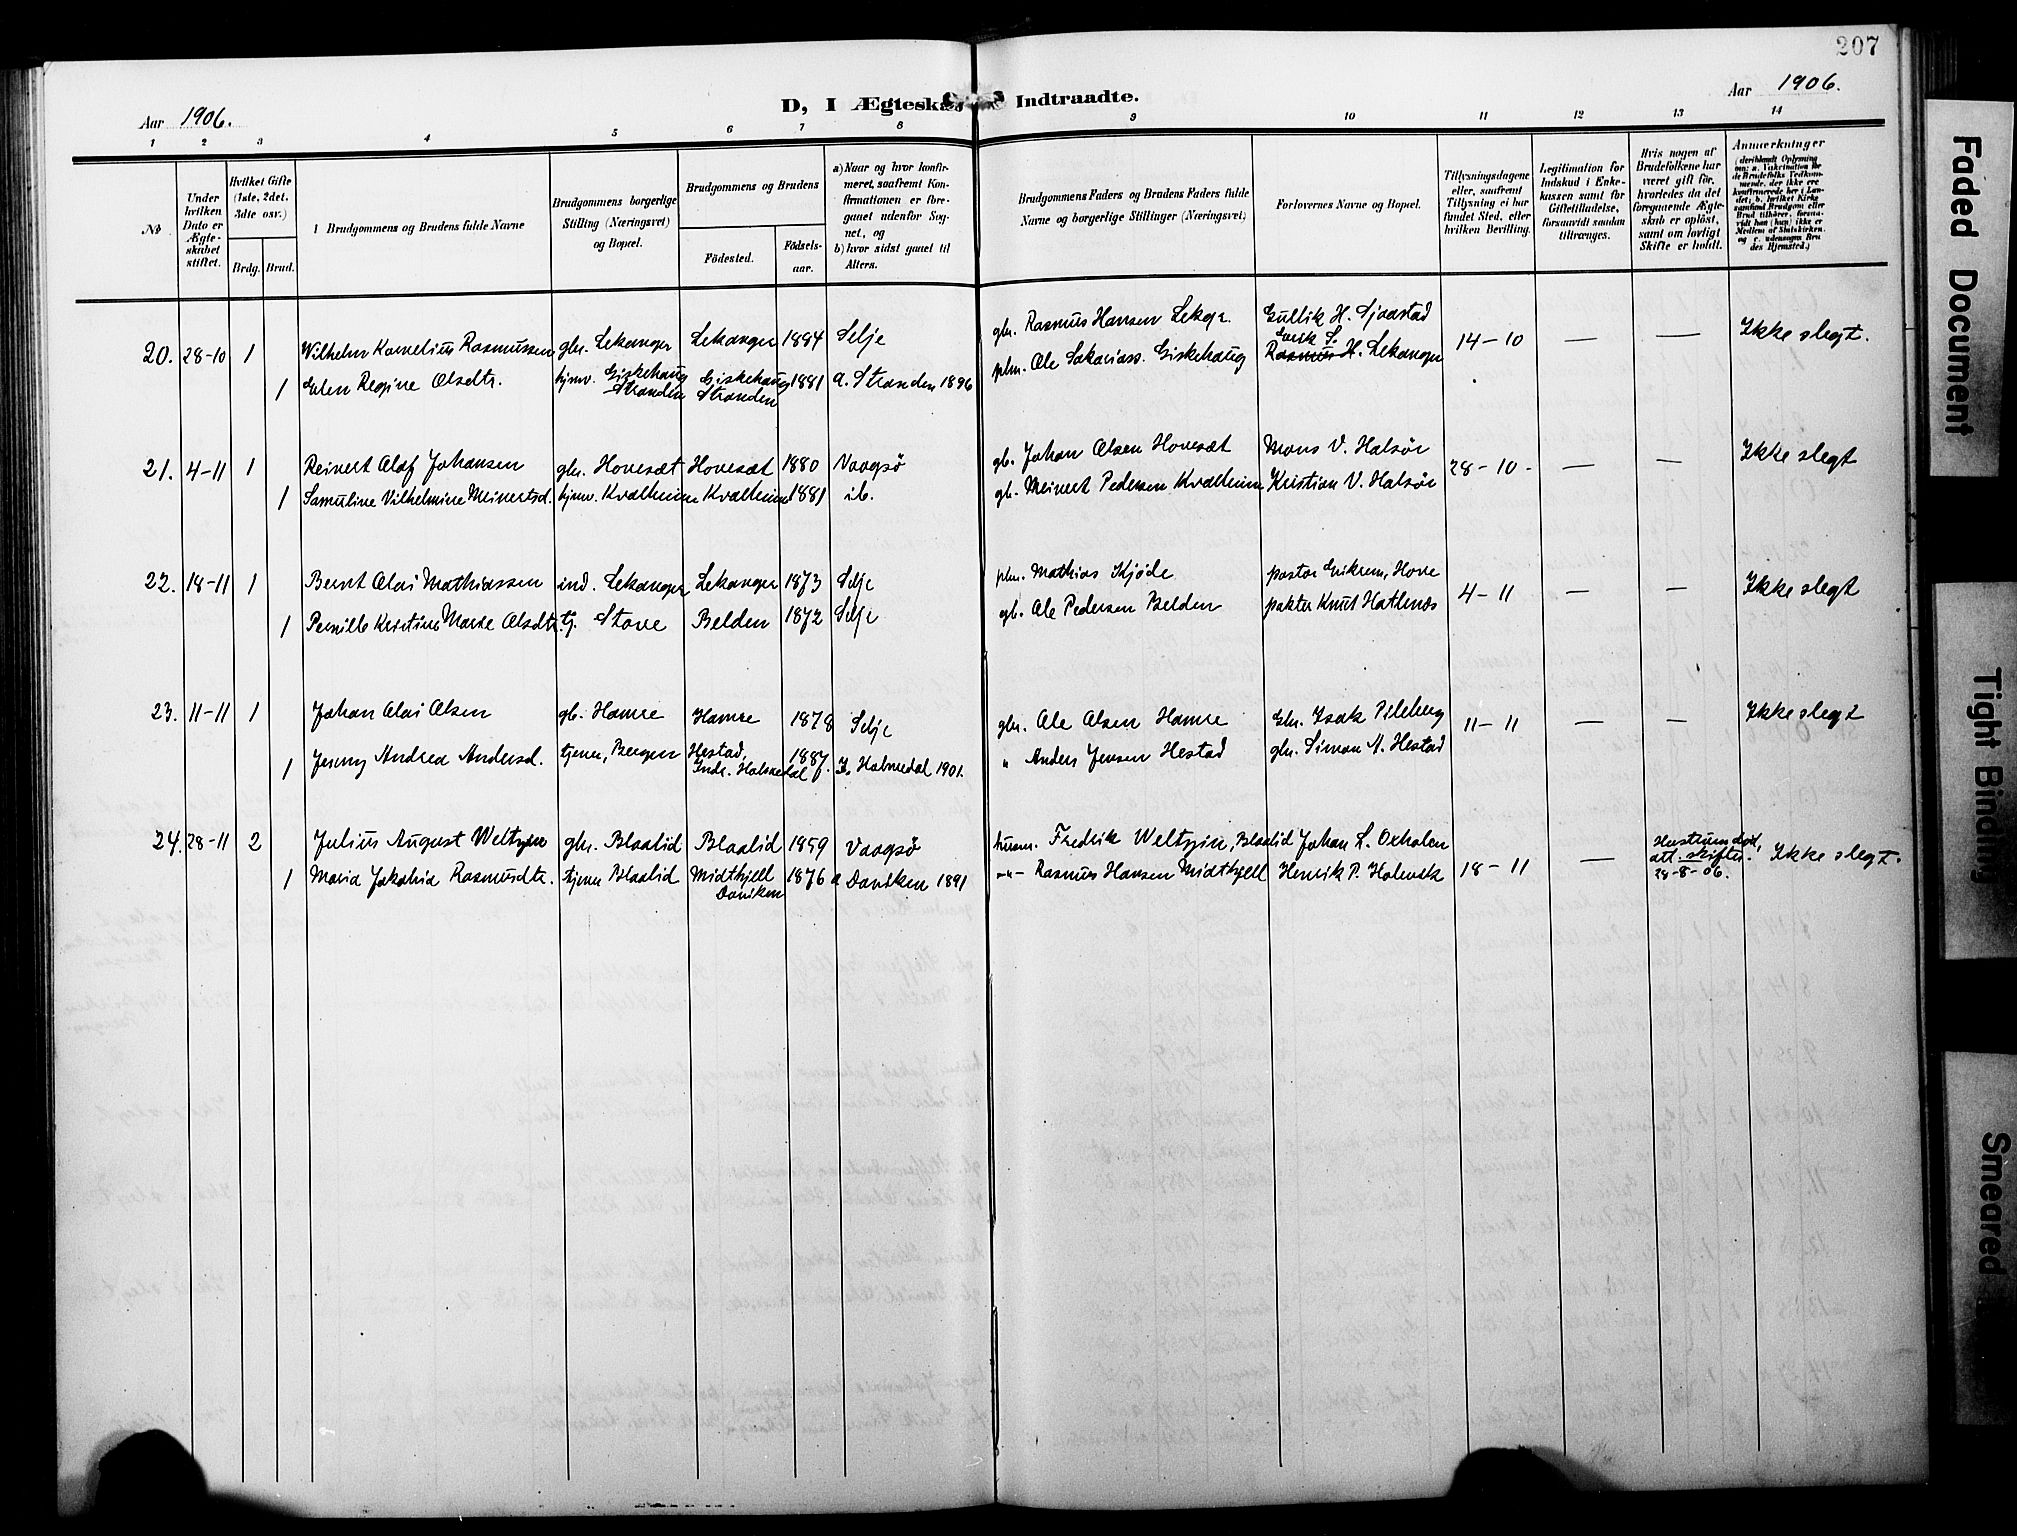 207
D, I Ægteskab Indtraadte.
Aar 1906.
Aar 1906.
1 2 3 4 5 6 7 8 9 10 11 12 13 14
No
Under hvilken Dato er Ægteskabet stiftet.
Hvilket Gifte (1ste, 2det, 3dte osv.)
Brdg. Brud.
Brudgommens og Brudens fulde Navne
Brudgommens borgerlige Stilling (Næringsvei) og Bopæl.
Brudgommens og Brudens
Fødested.
Fødselsaar.
a) Naar og hvor konfirmeret, saafremt Konfirmationen er foregaaet udenfor Sognet, og
b) hvor sidst gaaet til Alters.
Brudgommens Faders og Brudens Faders fulde Navne og borgerlige Stillinger (Næringsvei)
Forlovernes Navne og Bopæl.
Tillysningsdagene eller, saafremt Tillysning ei har fundet Sted, efter hvilken Bevilling.
Legitimation for Indskud i Enkekassen samt for Giftetilladelse, forsaavidt saadan tiltrænges.
Hvis nogen af Brudefolkene har været gift før, hvorledes da det foregaaende Ægteskab er opløst, samt om lovligt Skifte er holdt.
Anmærkninger
20. 28-10 1 Wilhelm Kornelius Rasmussen gbr. Lekanger Lekanger 1884 Selje gbr. Rasmus Hansen Lekgr. Gullik H. Sjaastad 14-10 — — Ikke slegt.
1 Elen Regine Olsdtr. hjmv. Giskehaug Stranden Giskehaug Stranden 1881 a. Stranden 1896 plm. Ole Sakariass. Giskehaug Erik S. Rasmus H. Lekanger
21. 4-11 1 Reinert Olaf Johansen gbr. Hovesæt Hovesæt 1880 Vaagsø gb. Johan Olsen Hovesæt Mons V. Halsør 28-10- — — Ikke slegt
1 Samuline Vilhelmine Meinertsd. hjmv. Kvalheim Kvalheim 1881 ib. gb. Meinert Pedersen Kvalheim Kristian V. Halsør
22. 18-11 1 Bernt Olai Mathiassen ind. Lekanger Lekanger 1873 Selje plm. Mathias Kjøde pastor Eikrem, Hove 4-11 — — Ikke slegt
1 Pernille Kristine Marie Olsdtr. tj. Stove Belden 1872 Selje gb. Ole Pedersen Belden pakter Knut Hatlenæs
23. 11-11 1 Johan Olai Olsen gb. Hamre Hamre 1878 Selje gbr. Ole Olsen Hamre Gbr. Isak Pileberg 11-11 — — Ikke slegt
1 Jenny Andrea Andersd. tjener, Bergen Hestad, Indr. Holmedal 1887. I. Holmedal 1901. " Anders Jensen Hestad gbr. Simon A. Hestad
24. 28-11 2 Julius August Weltzin gbr. Blaalid Blaalid 1859 Vaagsø husm. Fredrik Weltzin, Blaalid Johan L. Oxholen 18-11 — Hustruen død, att. skifter. 28-8-06. Ikke slegt.
1 Maria Jakobia Rasmusdtr. tjener Blaalid Midthjell Daviken 1876 a Daviken 1891 -"- Rasmus Hansen Midthjell Henrik P. Holevik
Faded Document
Tight Binding
Smeared